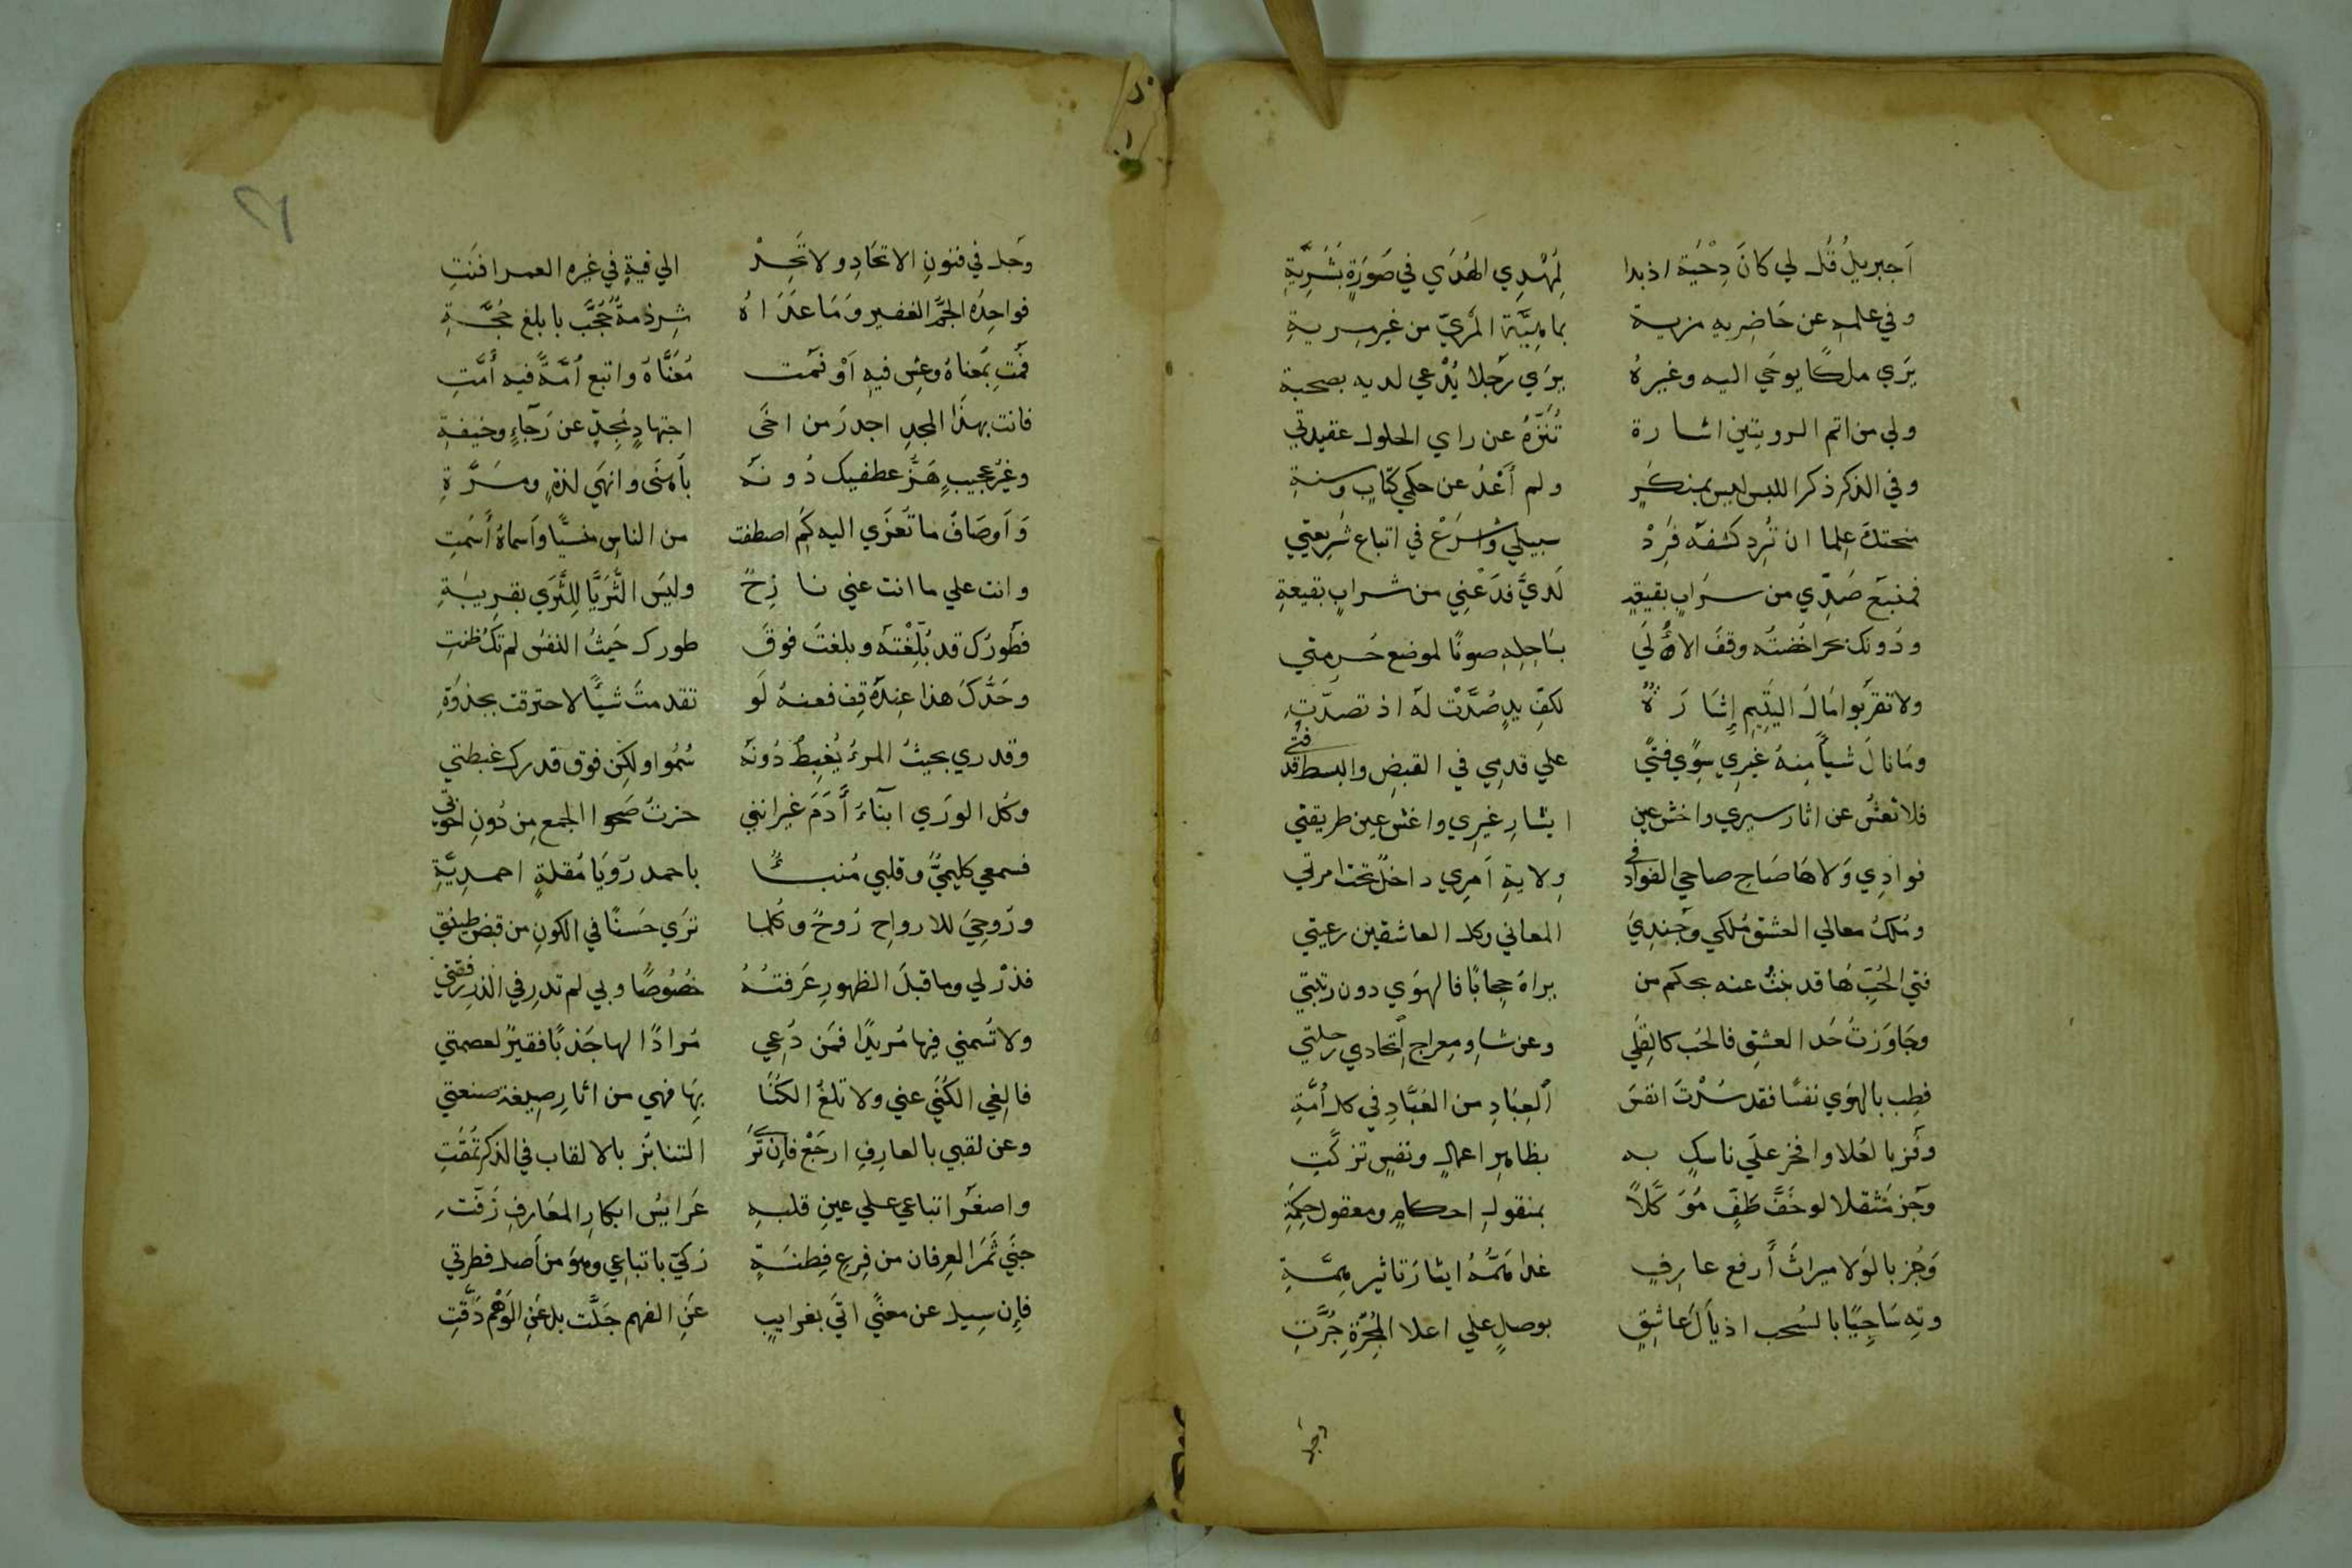 اَجبريلُ قُل لي كانَ دِحْيَة اذ بدا لِمُهْدِي الهُدَي في صَوَرَةٍ بَشَرِيَّةِ
وفي علمهِ عن حَاضِريه مزية بماهِيَّة المَرْيِّ من غير مرية
يَرَي ملكًا يوحَي اليه وغيرهُ يرَي رَجلا يُدْعي لديه بصحبة
ولي من اتم الرويتين اشارة تُنَزِّهُ عن راي الحلول عقيدتي
وفي الذكرِ ذكر اللبس ليس بمنكَرٍ ولم أعْدُ عن حكمي كتابٍ وسنةِ
منحتكَ عِلما ان تُرِد كشفَه فَرِدْ سبيلي واشرَعْ في اتباع شَرِيعتي
فمنبَع صَدِّي من سرَابٍ بقيعةٍ لَديَّ فدَعْنِي من شرابٍ بقيعةِ
ودُونك بحرا خُضتُه وقفَ الاُلَي بسَاحِلِهِ صونًا لموضع حُرمتي
ولا تقرَبوا مَالَ اليَتِيمِ إشَارَةٌ لكفِّ يدٍ صُدَّتْ لهَ اذ تصدّتِ
ومَا نالَ شيأً مِنهُ غيرِي سِوَي فتيً علي قدمِي في القبضِ والبسط قد فتي
فلا تَعْشُ عن اثار سيري واخش عين ايثارِ غيرِي واغش عين طريقتي
فوادِي وَلاهَا صَاحِ صاحي الفواد في ولايةِ اَمرِي داخلٌ تحت امرتي
ومُلكُ معالي العشق مُلكي وجندِيَ المعاني وكل العاشقين رعيتي
فتي الحُبِّ هَا قد بنتُ عنه بحكم من يراهُ حِجابًا فالهوَي دون رتبتي
وجَاوَزتُ حَد العشقِ فالحُب كالقِلَي وعن شاوِ معراج اتحادي رحلتي
فطِب بالهوَي نفسًا فقد سُدْتَ انفسَ العِبَادِ من العُبَّادِ في كل أُمَّةِ
وفُز بالعُلا وافخر علَي ناسكٍ به بظاهرِ اعمالٍ ونفسٍ تزكَّتِ
وجُز مُثقلا لو خَفَّ طَفَّ مُوَكَّلاً بمنقولِ احكامٍ ومعقول حِكمَةِ
وَحُز بالوَلا ميراثَ أَرفع عارِفٍ غدا هَمُّهُ ايثارَ تاثيرِ هِمَّةِ
وتِه سَاحِبًا بالسُحب اذيَالَ عَاشِقٍ بوصلٍ علي اعلا المَجَرَّةِ جُرَّتِ
وجُل
٢١
وجُل في فنونِ الاتحَادِ ولا تَحِدْ الي فيةٍ في غيره العمر افنَتِ
فواحِدُه الجَمُّ الغفير ومَا عدَاهُ شِرذمةٌ حُجَّت بابلغ حُجَّةِ
فمُتَّ بمَعناهُ وعِش فيهِ اَوْ فمت مُعَنَّاهُ واتبع اُمَّةً فيه أُمَّتِ
فانت بهذَا المجدِ اجدرَ من اخَى اجتهادٍ مُجِدٍّ عن رَجآءٍ وخيفةِ
وغيرُ عجيبٍ هَزُّ عطفيك دُونَهُ بأهنَى وانهَي لذةٍ ومسَرَّةِ
وَاَوصَافُ ما تَعزَي اليه كَم اصطفت من الناس منسيًّا وأسماهُ أسَمتِ
وانت علي ما انت عني نازِحٌ وليسَ الثُّرَيَّا لِلثَّرَي بقرِيبَةِ
فطَورُك قد بُلِّغْتَه وبلغتَ فوقَ طورك حَيثُ النفسُ لم تكُ ظنتِ
وحَدُّكَ هذا عِندَهُ قِف فعنهُ لَو تقدمتَ شيًّا لاحترقت بجذوَةِ
وقدري بحيثُ المرءُ يُغبطُ دُونَهُ سُمُوا ولكِن فوق قدرك غبطتي
وكُل الورَي ابنَآءُ آدَمَ غير انني حزتُ صَحوا الجمع مِن دُونِ اخوتي
فسمعي كليميٌّ وقلبي مُنبـأٌ باحمد رَؤيَا مُقلةٍ احمدِيَّةِ
ورُوحِيَ للارواحِ رُوحٌ وكُلما ترَي حَسنًا في الكونِ من فيض طينتي
فذرْ لي وما قبلَ الظهورِ عَرَفتُهُ خصُوصًا وبي لم تدرِ في الذرِ رفقتي
ولا تُسمني فيها مُريدًا فمَن دُعِي مُرادًا لها جَذبًا فقيرٌ لعصمتي
فالغِي الكُنَي عني ولا تلغُ الكَنَا بِهَا فهي من اثارِ صِيغة صنعتي
وعن لقبي بالعارِفِ ارجَعْ فاِن ترَى التنابُز بالالقاب في الذكر تُمقَتِ
واصغَر اتباعي علي عينِ قلبهِ عَرَايسُ ابكارِ المعَارِفِ زَفّت
جنَي ثَمَرَ العِرفان من فرعِ فِطنَةٍ زكيِّ باتباعِي وهوَ من أصل فطرتي
فإن سِيل عن معنًي اتَي بغرايبٍ عَنِ الفهم جَلَّت بل عَنِ الوَهْم دَقَّتِ